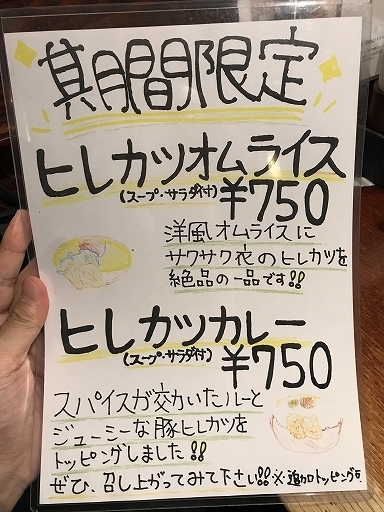 期間限定
ヒレカツオムライス
(スープ・サラダ付) ¥750
洋風オムライスに
サクサク衣のヒレカツを
絶品の一品です!!
ヒレカツカレー
(スープ・サラダ付) ¥750
スパイスが効いたルーと
ジューシーな豚ヒレカツを
トッピングしました!!
ぜひ、召し上がってみて下さい!!※追加トッピング可